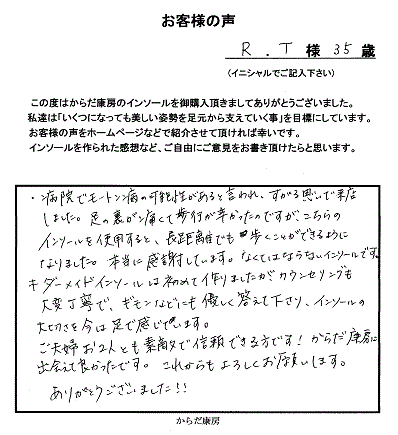 お客様の声
R.T 様 35 歳
(イニシャルでご記入下さい)
この度はからだ康房のインソールを御購入頂きましてありがとうございました。
私達は「いくつになっても美しい姿勢を足元から支えていく事」を目標にしています。
お客様の声をホームページなどで紹介させて頂ければ幸いです。
インソールを作られた感想など、ご自由にご意見をお書き頂けたらと思います。
・病院でモートン病の可能性があると言われ、すがる思いで来店
しました。足の裏が痛くて歩行が辛かったのですが、こちらの
インソールを使用すると、長距離でも歩くことができるように
なりました。本当に感謝しています。なくてはならないインソールです。
オーダーメイドインソールは初めて作りましたがカウンセリングも
大変丁寧で、ギモンなどにも優しく答えて下さり、インソールの
大切さを今は足で感じています。
ご夫婦お2人とも素敵で信頼できる方です!からだ康房に
出会えて良かったです。これからもよろしくお願いします。
ありがとうございました!!
からだ康房